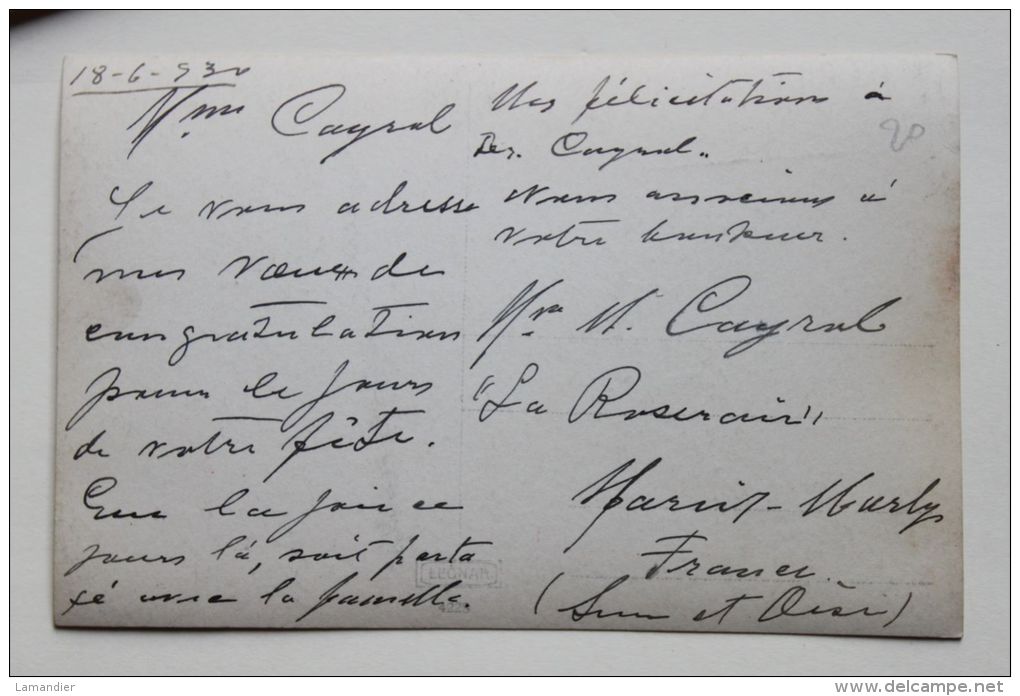 18-6-930
Mme Cayrol
Je vous adresse
mes vœux de
congratulation
pour le jours
de votre fête.
Que la joie ce
jours là, soit parta
gé avec la famille.
Mes félicitations à
Der. Cayrol.
Nous associons à
votre bonheur.
20
Mra M. Cayrol
"La Roseraie"
Mariot-Marly
France.
(Sene et Oise)
LEONAR
Lamandier
www.delcampe.net